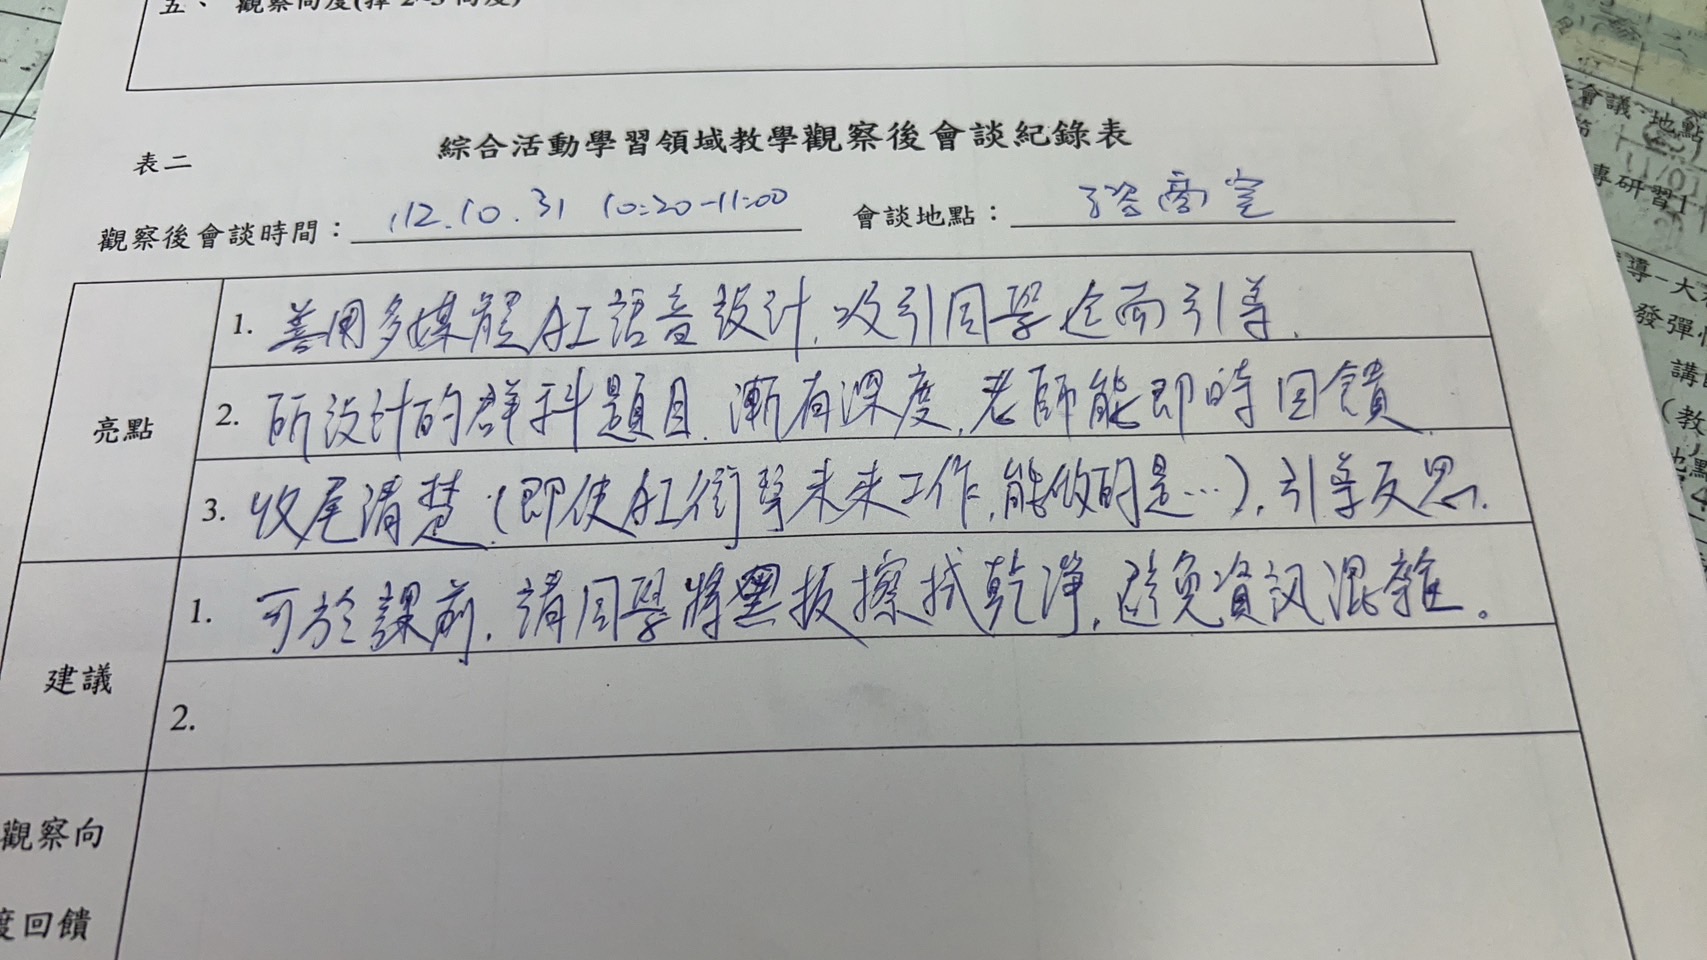 五、 觀察向度(擇 2~3 向度)
表二
綜合活動學習領域教學觀察後會談紀錄表
觀察後會談時間： 112.10.31 10:20-11:00 會談地點： 諮商室
亮點
1. 善用多媒體AI語音設計,吸引同學進而引導.
2. 所設計的群科題目,漸有深度,老師能即時回饋.
3. 收尾清楚,(即使AI衝擊未來工作,能做的是…),引導反思.
建議
1. 可於課前,請同學將黑板擦拭乾淨,避免資訊混雜。
2.
觀察向
度回饋
會議 地點
11/01
專研習
導-大
發彈
講
(教
地點